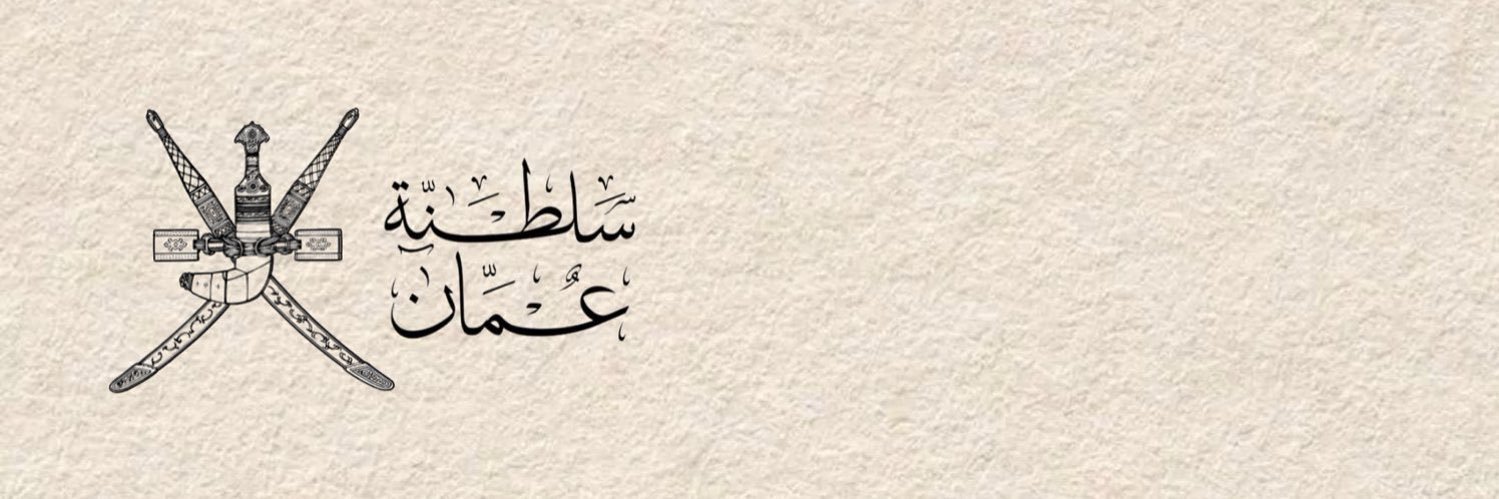 سَلْطَنَة
عُمَّان